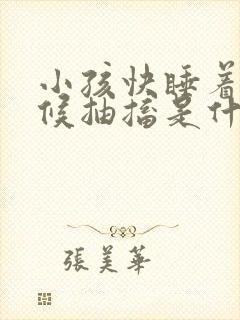 小孩快睡着
候抽搐是什
張美華